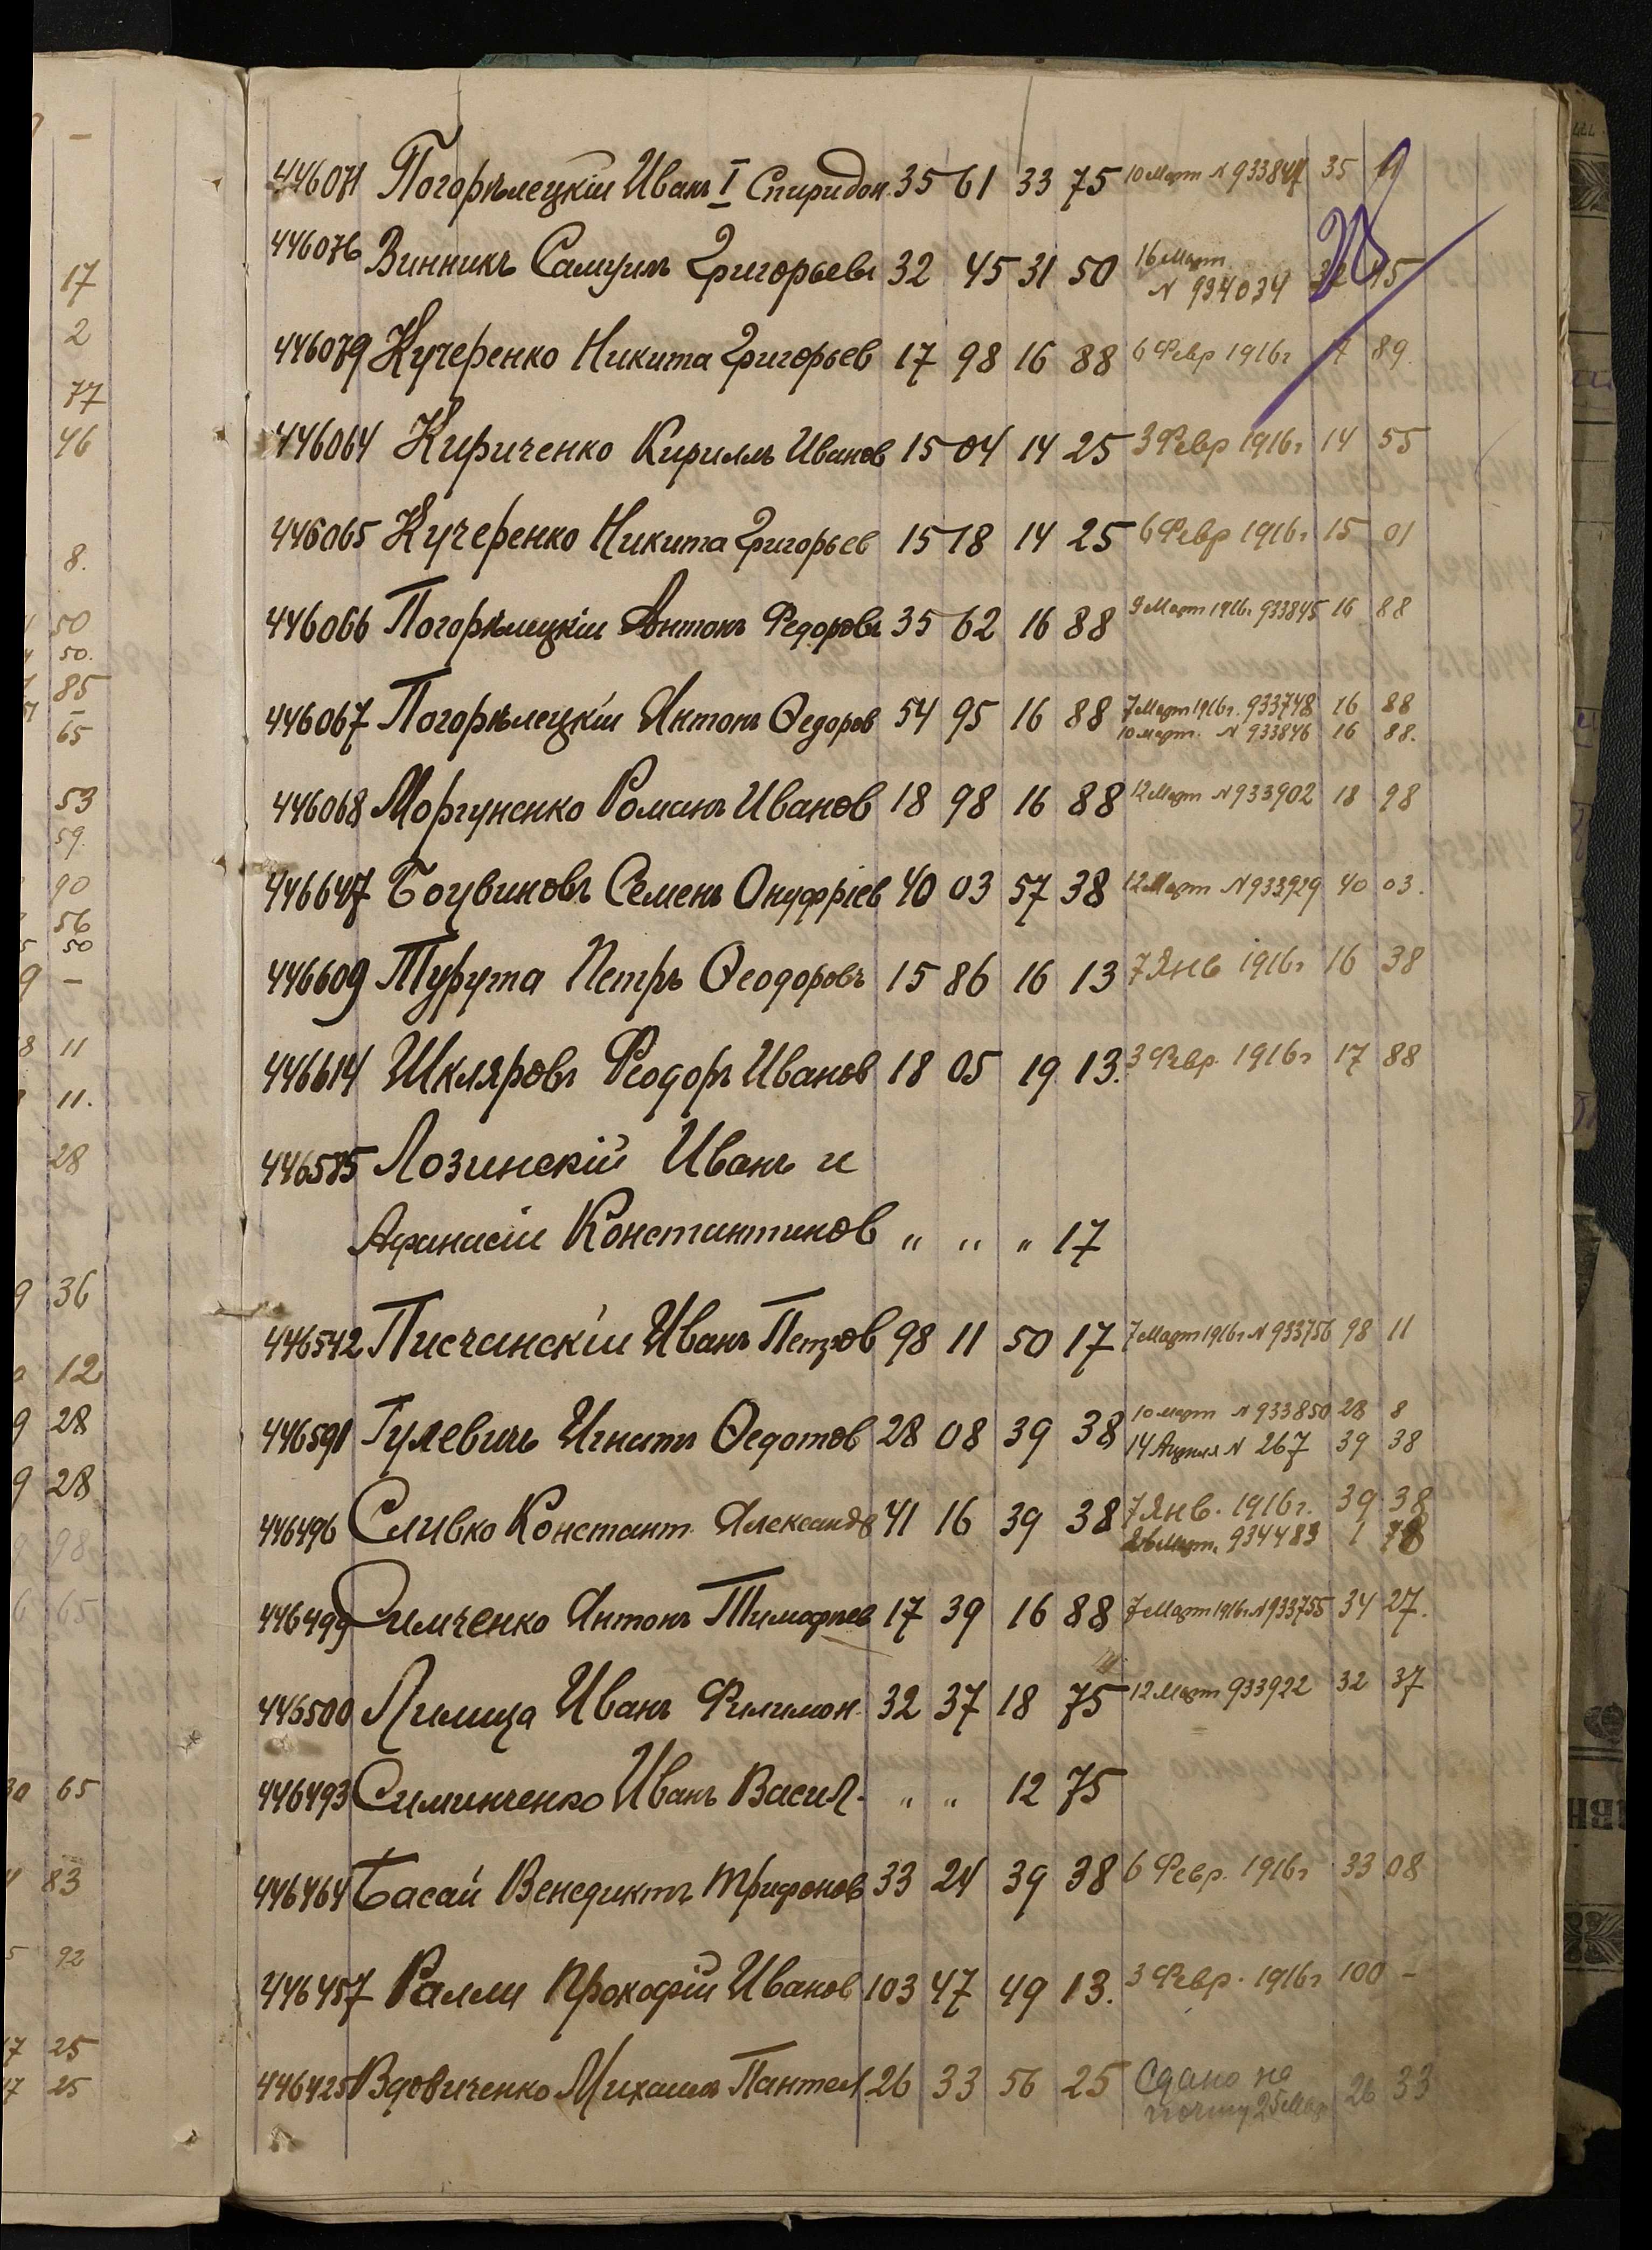 446071 Погорѣлецкій Иванъ I Спиридон. 35 61 33 75 10 Март N 933844 35
446076 Винникъ Самуилъ Григорьевъ 32 45 31 50 16 Март
N 934034 32 45
446079 Кучеренко Никита Григорьев 17 98 16 88 6 Февр 1916г 89.
446064 Кириченко Кириллъ Иванов 15 04 14 25 3 Февр 1916г 14 55
446065 Кучеренко Никита Григорьев 15 18 14 25 6 Февр 1916г 15 01
446066 Погорѣлецкій Антонъ Федоровъ 35 62 16 88 9 Март 1916г. 933845 16 88
446067 Погорѣлецкій Антонъ Ѳедоров 54 95 16 88 7 Март 1916г. 933748 16 88
10 март. N 933846 16 88.
446068 Моргуненко Романъ Иванов 18 98 16 88 12 Март N 933902 18 98
446647 Богувиновъ Семенъ Онуфріев 40 03 57 38 12 Март N 933929 40 03.
446609 Турута Петръ Ѳеодоровъ 15 86 16 13 7 Янв 1916г 16 38
446614 Шкляровъ Феодоръ Иванов 18 05 19 13. 3 Февр. 1916г 17 88
446585 Лозинскій Иванъ и
Афанасій Константинов „ „ „ 17
446542 Писчанскій Иванъ Петров 98 11 50 17 7 Март 1916г N 933756 98 11
446591 Гулевичъ Игнатъ Ѳедотов 28 08 39 38 10 март N 933850 28 8
14 Апреля N 267 39 38
446496 Сливко Констант. Александ 41 16 39 38 7 Янв. 1916г. 39 38
26 Март. 934483 1 78
446499 Симченко Антонъ Тимофѣев 17 39 16 88 7 Март 1916г. N 933755 34 27.
446500 Лилица Иванъ Филимон. 32 37 18 75 12 Март 933922 32 37
446493 Симинченко Иванъ Васил. „ „ 12 75
446464 Басай Венедиктъ Трифонов 33 24 39 38 6 Февр. 1916г 33 08
446457 Ралли Прокофій Иванов 103 47 49 13. 3 Февр. 1916г 100 –
446425 Вдовиченко Михаилъ Пантел. 26 33 56 25 Сдано на 26 33
почту 25 Мар